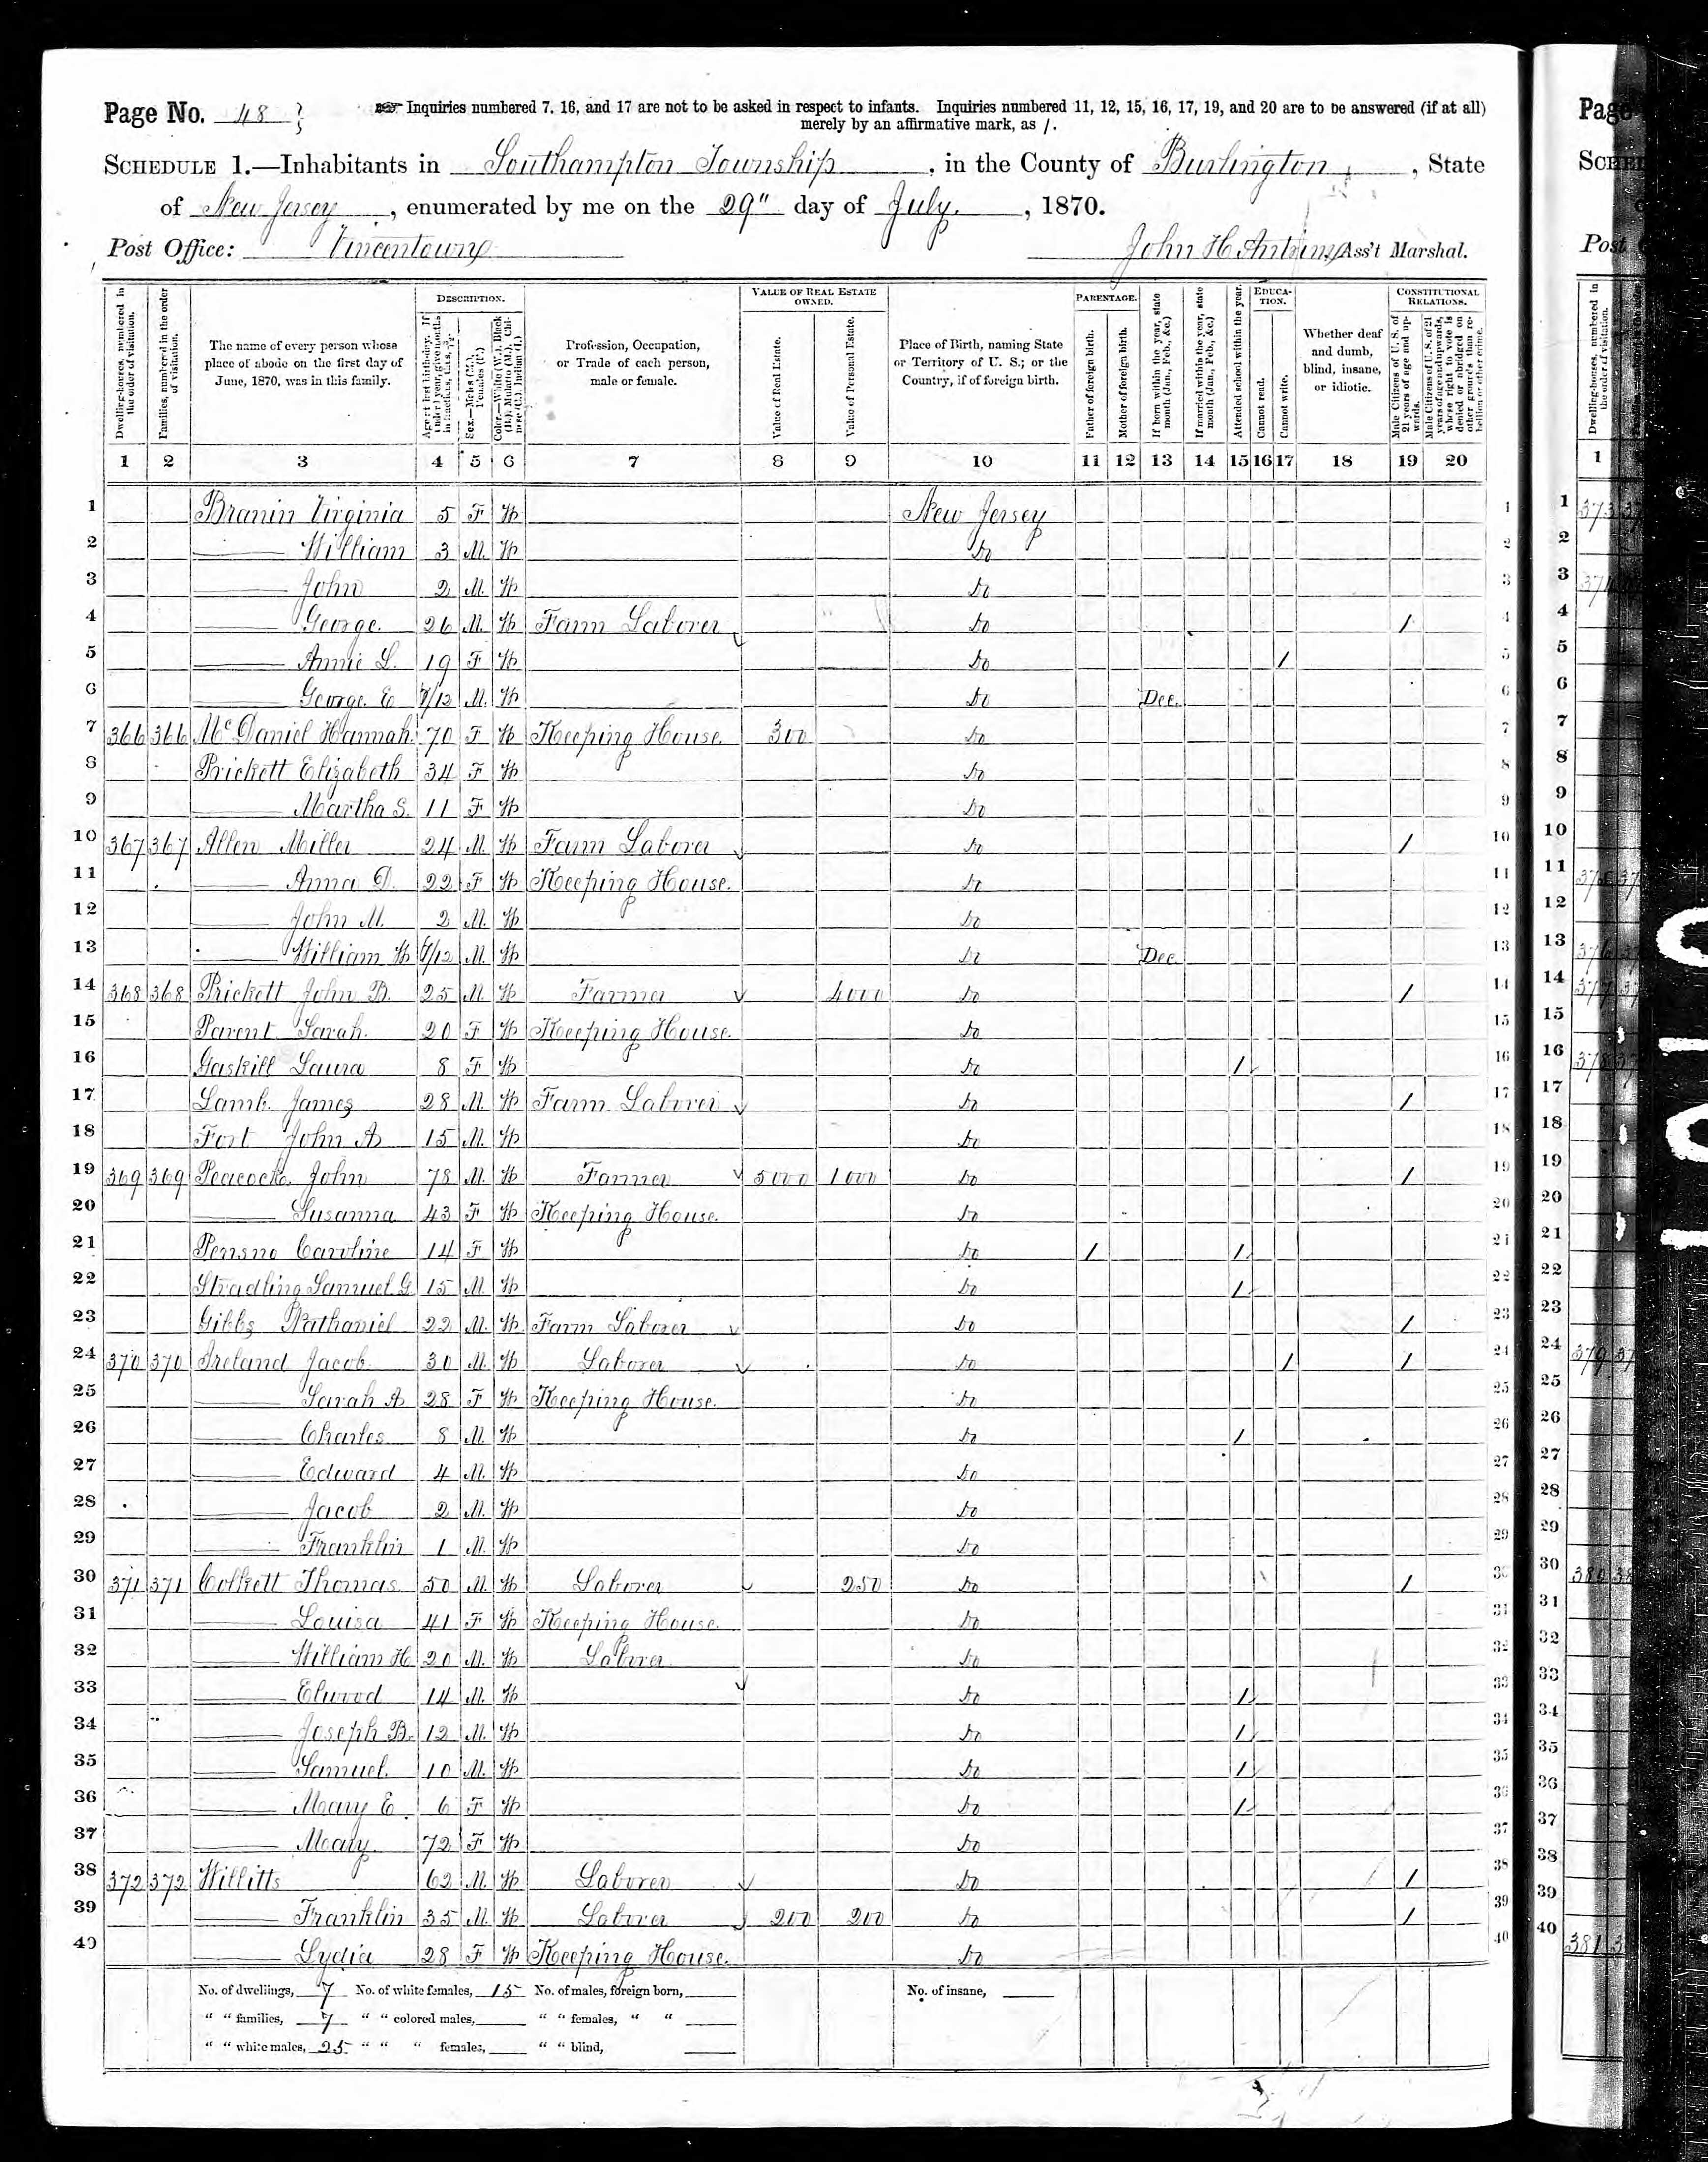 Page No. 48
Inquiries numbered 7, 16, and 17 are not to be asked in respect to infants. Inquiries numbered 11, 12, 15, 16, 17, 19, and 20 are to be answered (if at all)
merely by an affirmative mark, as /.
SCHEDULE 1.—Inhabitants in Southampton Township, in the County of Burlington, State
of New Jersey, enumerated by me on the 29" day of July, 1870.
Post Office: Vincentown John H Antrim, Ass't Marshal.
Dwelling-houses, numbered in the order of visitation.
Families, numbered in the order of visitation.
The name of every person whose place of abode on the first day of June, 1870, was in this family.
DESCRIPTION.
Age at last birth-day. If under 1 year, give months in fractions, thus, 3/12.
Sex.—Males (M.), Females (F.)
Color.—White (W.), Black (B.), Mulatto (M.), Chinese (C.), Indian (I.)
Profession, Occupation, or Trade of each person, male or female.
VALUE OF REAL ESTATE OWNED.
Value of Real Estate.
Value of Personal Estate.
Place of Birth, naming State or Territory of U. S.; or the Country, if of foreign birth.
PARENTAGE.
Father of foreign birth.
Mother of foreign birth.
If born within the year, state month (Jan., Feb., &c.)
If married within the year, state month (Jan., Feb., &c.)
Attended school within the year.
EDUCATION.
Cannot read.
Cannot write.
Whether deaf and dumb, blind, insane, or idiotic.
CONSTITUTIONAL RELATIONS.
Male Citizens of U. S. of 21 years of age and upwards.
Male Citizens of U. S. of 21 years of age and upwards, whose right to vote is denied or abridged on other grounds than rebellion or other crime.
1 2 3 4 5 6 7 8 9 10 11 12 13 14 15 16 17 18 19 20
1 Branin Virginia 5 F W New Jersey 1
2 —— William 3 M. W Do 2
3 —— John 2 M. W Do 3
4 —— George 26 M. W Farm Laborer Do / 4
5 —— Annie L. 19 F W Do / 5
6 —— George E 7/12 M. W Do Dec. 6
7 366 366 McDaniel Hannah 70 F W Keeping House. 300 Do 7
8 Prickett Elizabeth 34 F W Do 8
9 —— Martha S. 11 F W Do 9
10 367 367 Allen Miller 24 M. W Farm Laborer Do / 10
11 —— Anna D. 22 F W Keeping House. Do 11
12 —— John M. 2 M. W Do 12
13 —— William W 7/12 M. W Do Dec 13
14 368 368 Prickett John B. 25 M. W Farmer 4000 Do / 14
15 Parent Sarah. 20 F W Keeping House. Do 15
16 Gaskill Laura 8 F W Do / 16
17 Lamb James 28 M. W Farm Laborer Do / 17
18 Fort John A 15 M. W Do 18
19 369 369 Peacock John 78 M. W Farmer 5000 1000 Do / 19
20 —— Susanna 43 F W Keeping House. Do 20
21 Caroline 14 F W Do / / 21
22 Stradling Samuel G 15 M. W Do / 22
23 Gibbs Nathaniel 22 M. W Farm Laborer Do / 23
24 370 370 Ireland Jacob 30 M. W Laborer Do / / 24
25 —— Sarah A 28 F W Keeping House. Do 25
26 —— Charles 8 M. W Do / 26
27 —— Edward 4 M. W Do 27
28 —— Jacob 2 M. W Do 28
29 —— Franklin 1 M. W Do 29
30 371 371 Colkett Thomas 50 M. W Laborer 250 Do / 30
31 —— Louisa 41 F W Keeping House. Do 31
32 —— William H 20 M. W Laborer Do 32
33 —— Elwood 14 M. W Do / 33
34 —— Joseph B. 12 M. W Do / 34
35 —— Samuel. 10 M. W Do / 35
36 —— Mary E. 6 F W Do / 36
37 —— Mary 72 F W Do 37
38 372 372 Willitts 62 M. W Laborer Do / 38
39 —— Franklin 35 M. W Laborer 200 200 Do / 39
40 —— Lydia 28 F W Keeping House. Do 40
No. of dwellings, 7 No. of white females, 15 No. of males, foreign born, No. of insane,
" " families, 7 " " colored males, " " females, " "
" " white males, 25 " " " females, " " blind,